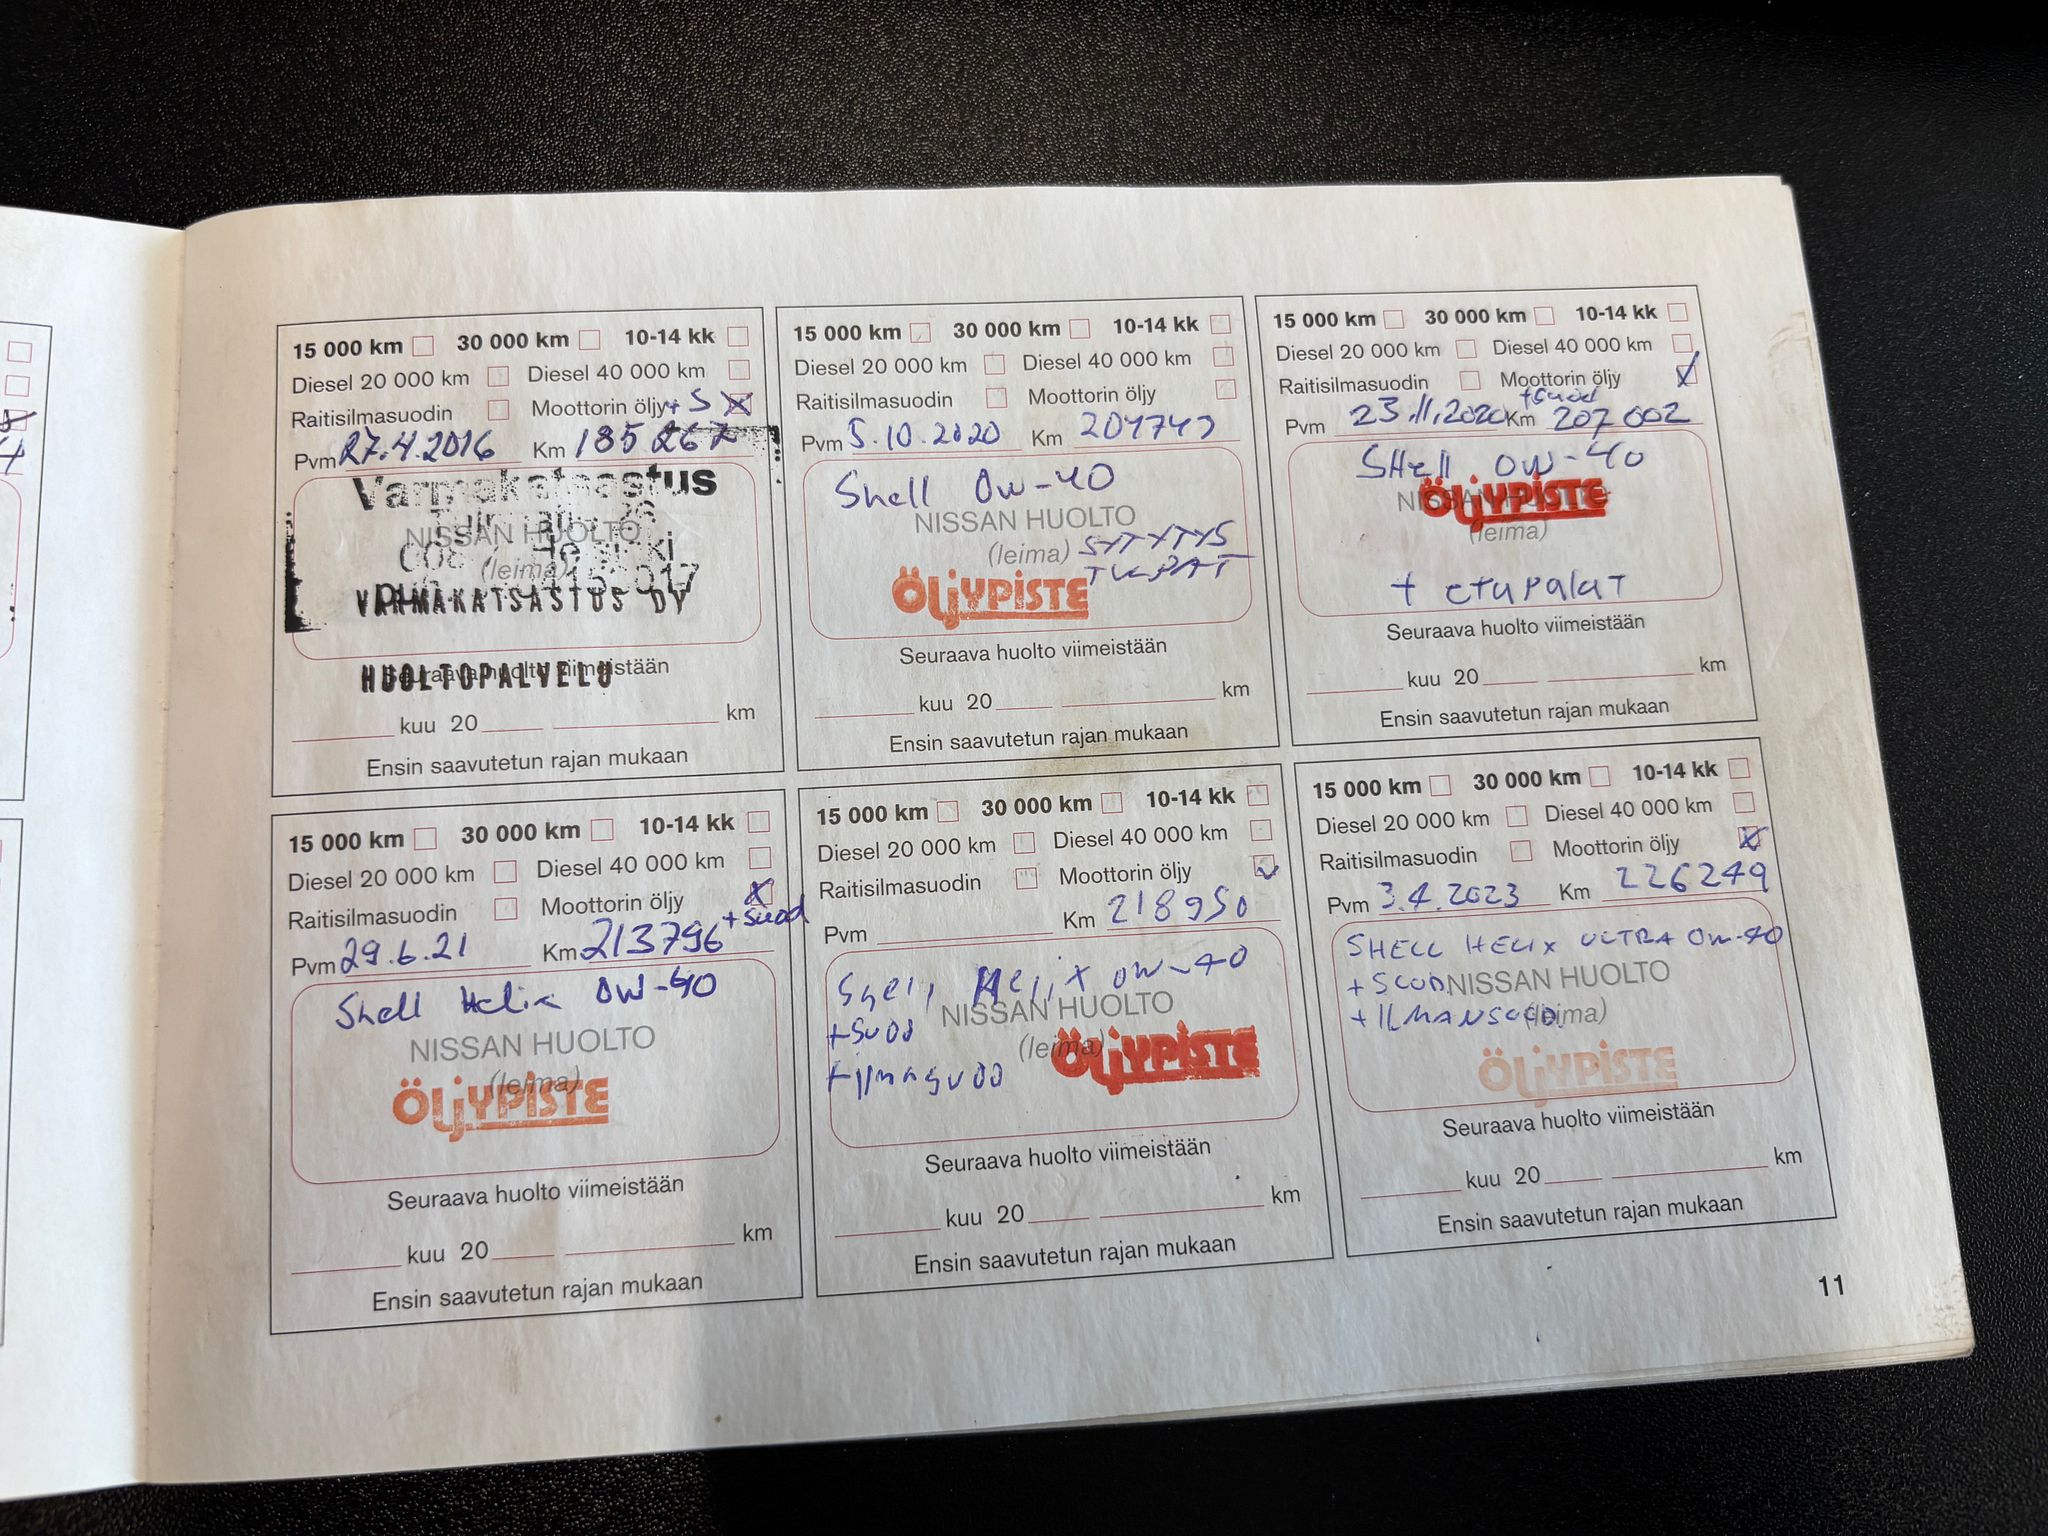 15 000 km 30 000 km 10-14 kk
Diesel 20 000 km Diesel 40 000 km
Raitisilmasuodin Moottorin öljy + S
Pvm 27.4.2016 Km 185 267
Varmakatsastus
NISSAN HUOLTO
(leima)
VARMAKATSASTUS OY
HUOLTOPALVELU
Seuraava huolto viimeistään
kuu 20 km
Ensin saavutetun rajan mukaan
15 000 km 30 000 km 10-14 kk
Diesel 20 000 km Diesel 40 000 km
Raitisilmasuodin Moottorin öljy
Pvm 5.10.2020 Km
Shell 0W-40
NISSAN HUOLTO
(leima) SYTYTYS
TULPAT
ÖLJYPISTE
Seuraava huolto viimeistään
kuu 20 km
Ensin saavutetun rajan mukaan
15 000 km 30 000 km 10-14 kk
Diesel 20 000 km Diesel 40 000 km
Raitisilmasuodin Moottorin öljy
+ suod
Pvm 23.11.2020 Km 207 002
SHell 0W-40
NISSAN HUOLTO
ÖLJYPISTE
(leima)
+ etupalat
Seuraava huolto viimeistään
kuu 20 km
Ensin saavutetun rajan mukaan
15 000 km 30 000 km 10-14 kk
Diesel 20 000 km Diesel 40 000 km
Raitisilmasuodin Moottorin öljy
+ suod
Pvm 29.6.21 Km 213796
Shell Helix 0W-40
NISSAN HUOLTO
(leima)
ÖLJYPISTE
Seuraava huolto viimeistään
kuu 20 km
Ensin saavutetun rajan mukaan
15 000 km 30 000 km 10-14 kk
Diesel 20 000 km Diesel 40 000 km
Raitisilmasuodin Moottorin öljy
Pvm Km 218950
Shell Helix 0W-40
NISSAN HUOLTO
+ suod
(leima) ÖLJYPISTE
+ ilmasuod
Seuraava huolto viimeistään
kuu 20 km
Ensin saavutetun rajan mukaan
15 000 km 30 000 km 10-14 kk
Diesel 20 000 km Diesel 40 000 km
Raitisilmasuodin Moottorin öljy
Pvm 3.4.2023 Km 226249
SHELL HELIX ULTRA 0W-40
+ SUOD. NISSAN HUOLTO
+ ILMANSUOD. (leima)
ÖLJYPISTE
Seuraava huolto viimeistään
kuu 20 km
Ensin saavutetun rajan mukaan
11